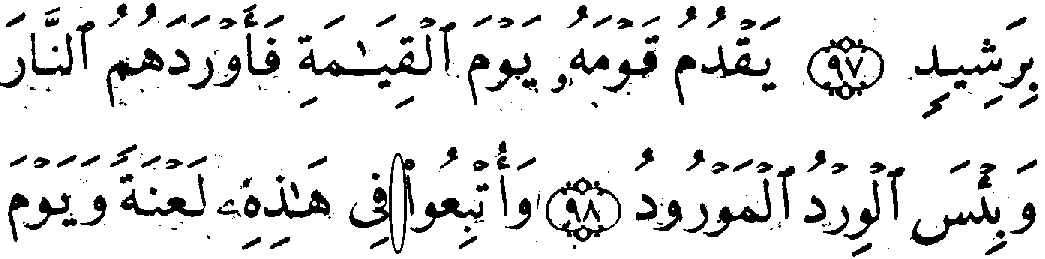 بِرَشِيدٍ ﴿٩٧﴾ يَقْدُمُ قَوْمَهُۥ يَوْمَ ٱلْقِيَـٰمَةِ فَأَوْرَدَهُمُ ٱلنَّارَ
وَبِئْسَ ٱلْوِرْدُ ٱلْمَوْرُودُ ﴿٩٨﴾ وَأُتْبِعُوا۟ فِى هَـٰذِهِۦ لَعْنَةً وَيَوْمَ